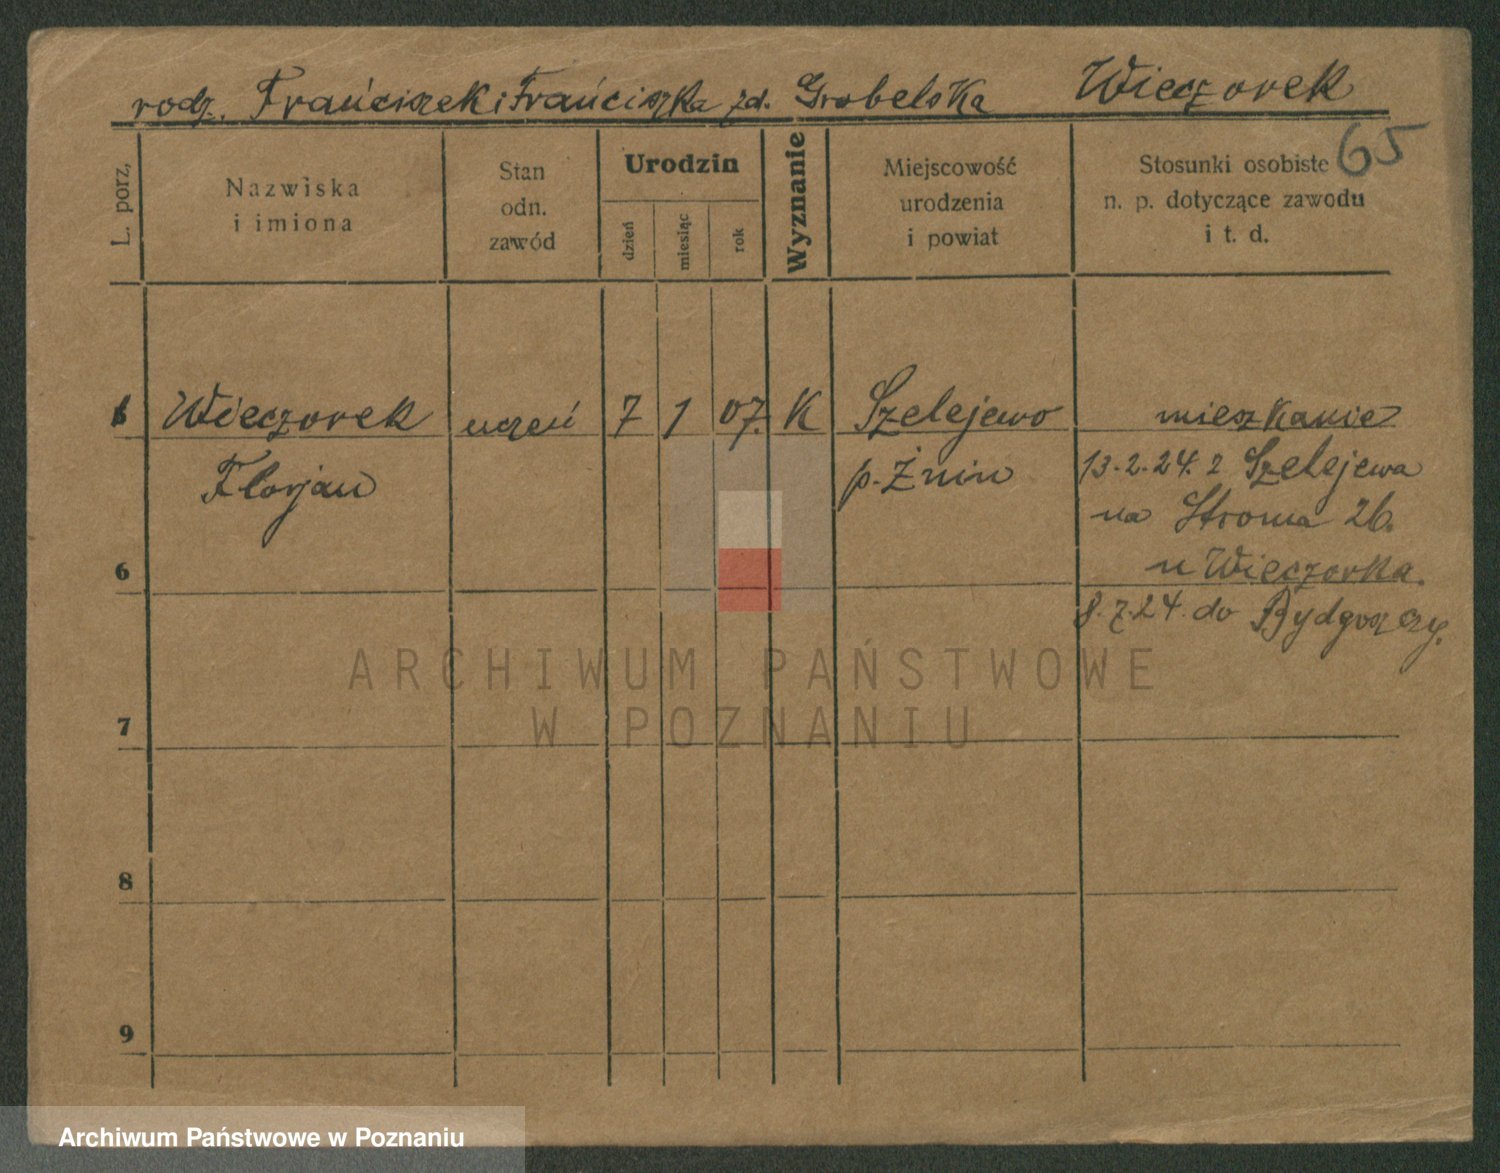 rodz. Frańciszek i Frańciszka zd. Grobelska Wieczorek
65
L. porz.
Nazwiska
i imiona
Stan
odn.
zawód
Urodzin
dzień
miesiąc
rok
Wyznanie
Miejscowość
urodzenia
i powiat
Stosunki osobiste
n. p. dotyczące zawodu
i t. d.
Wieczorek uczeń 7 1 07. K Szelejewo mieszkanie
Florjan p. Żnin 13.2.24. z Szelejewa
na Stroma 26.
6 u Wieczorka.
8.7.24. do Bydgoszczy.
ARCHIWUM PAŃSTWOWE
W POZNANIU
7
8
9
Archiwum Państwowe w Poznaniu